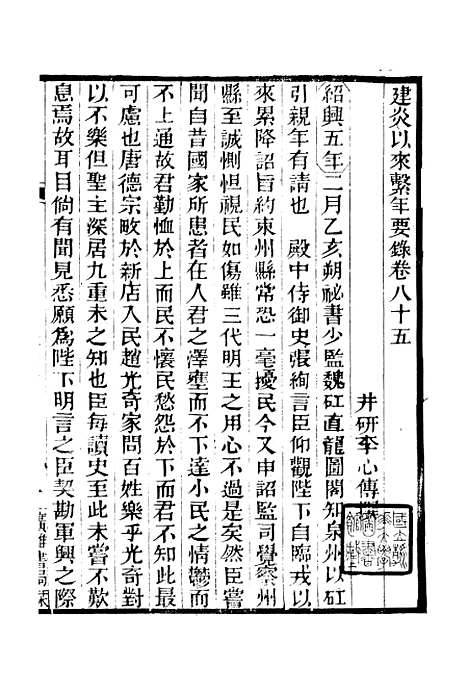 建炎以來繫年要錄卷八十五
井研李心傳撰
紹興五年二月乙亥朔祕書少監魏矼直龍圖閣知泉州以矼
引親年有請也　殿中侍御史張絢言臣仰觀陛下自臨戎以
來累降詔旨約束州縣常恐一毫擾民今又申詔監司覺察州
縣至誠惻怛視民如傷雖三代明王之用心不過是矣然臣嘗
聞自昔國家所患者在人君之澤壅而不下達小民之情鬱而
不上通故君勤恤於上而民不懷民愁怨於下而君不知此最
可慮也唐德宗畋於新店入民趙光奇家問百姓樂乎光奇對
以不樂但聖主深居九重未之知也臣每讀史至此未嘗不歎
息焉故耳目倘有聞見悉願為陛下明言之臣契勘軍興之際
廣雅書局栞